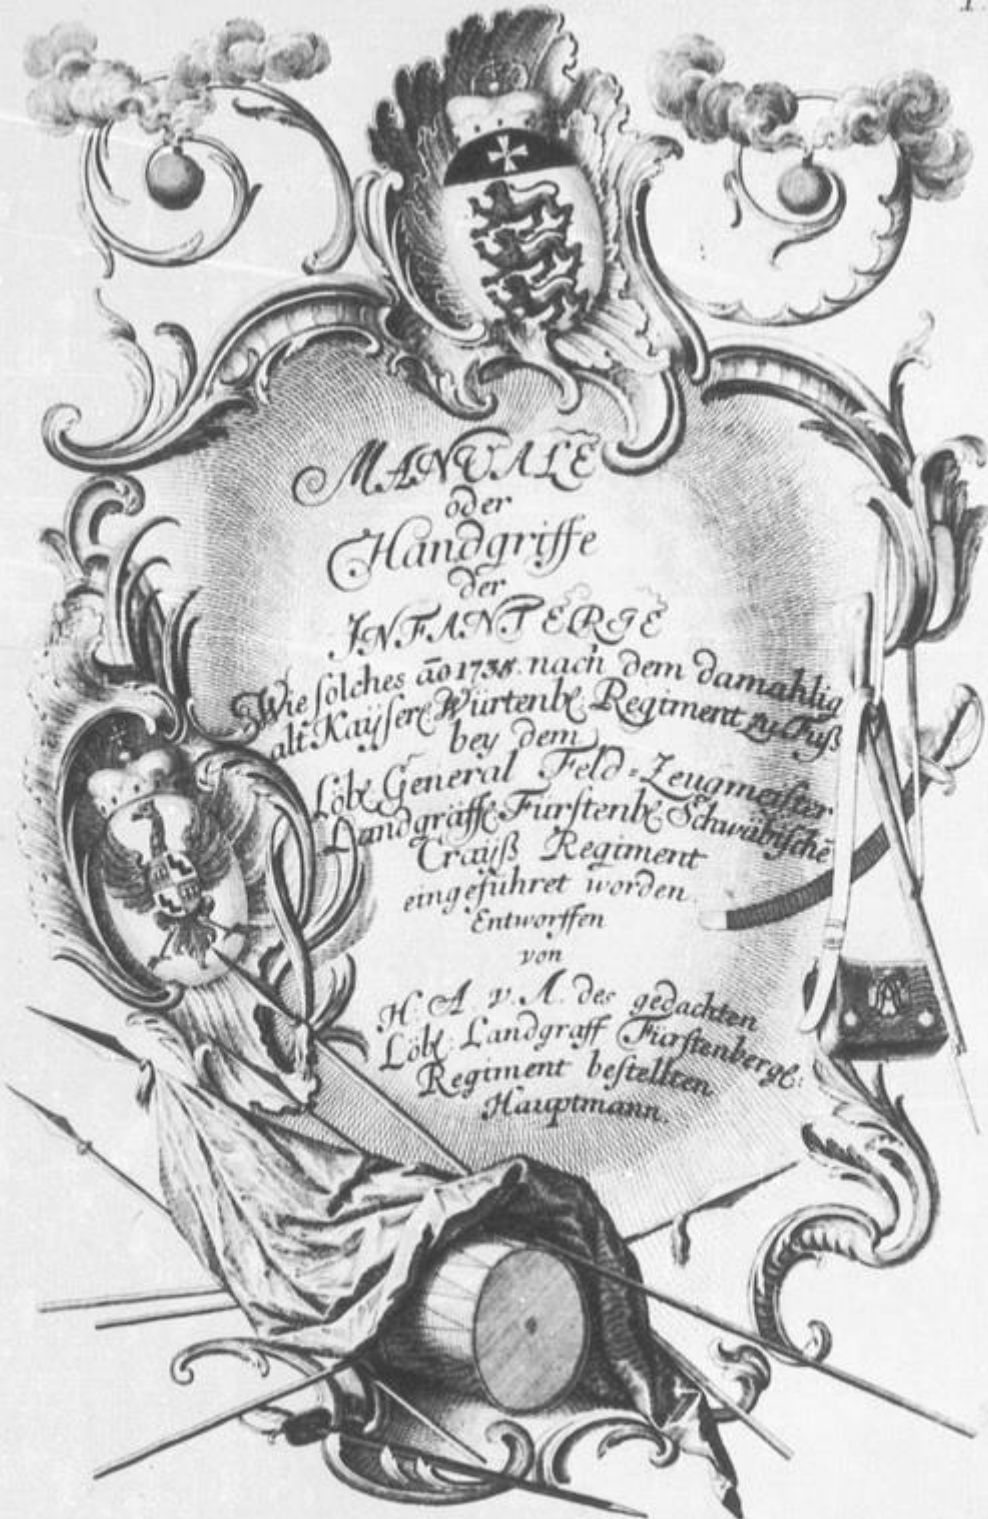 1.
MANUALE
oder
Handgriffe
der
INFANTERIE
Wie solches āo 1735. nach dem damahlig
alt Kaÿserl: Würtenbl: Regiment zu Fuß
bey dem
Löbl: General Feld-Zeugmeister
Landgräffl: Fürstenbl: Schwäbischē
Craÿß Regiment
eingeführet worden.
Entworffen
von
H. A. v. A. des gedachten
Löbl: Landgraff Fürstenbergl:
Regiment bestellten
Hauptmann.